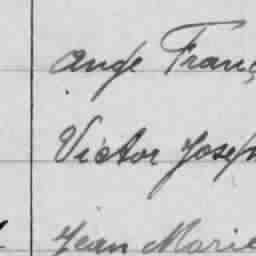 Ange Franç
Victor Joseph
Jean Marie